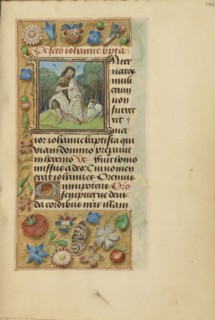 De sco iohanne bpta
Inter
natos
muli
erum
non
surrex
it
maior iohanne baptista qui
viam domino preparavit
in heremo Fuit homo
missus a deo Cui nomen
erat iohannes Oremus
omnipotens
sempiterne deus
da cordibus nris illam